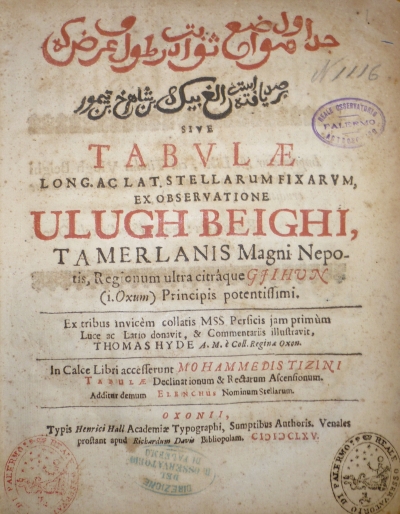 جداول مواضع ثوابت در طول و عرض كه
N 1116
برصد يافته است الغ بيك بن شاهرخ بن تيمور
SIVE
TABVLÆ
LONG. AC LAT. STELLARUM FIXARVM,
EX OBSERVATIONE
ULUGH BEIGHI,
TAMERLANIS Magni Nepo-
tis, Regionum ultra citràque GJIHUN
(i. Oxum) Principis potentissimi.
Ex tribus invicèm collatis MSS Persicis jam primùm
Luce ac Latio donavit, & Commentariis illustravit,
THOMAS HYDE A. M. è Coll. Reginæ Oxon.
In Calce Libri accesserunt MOHAMMEDIS TIZINI
TABULÆ Declinationum & Rectarum Ascensionum.
Additur demum ELENCHUS Nominum Stellarum.
OXONII,
Typis Henrici Hall Academiæ Typographi, Sumptibus Authoris. Venales
prostant apud Richardum Davis Bibliopolam. CIƆIƆCLXV.
PALERMO
DIREZIONE
DEL
R. OSSERVATORIO
DI PALERMO